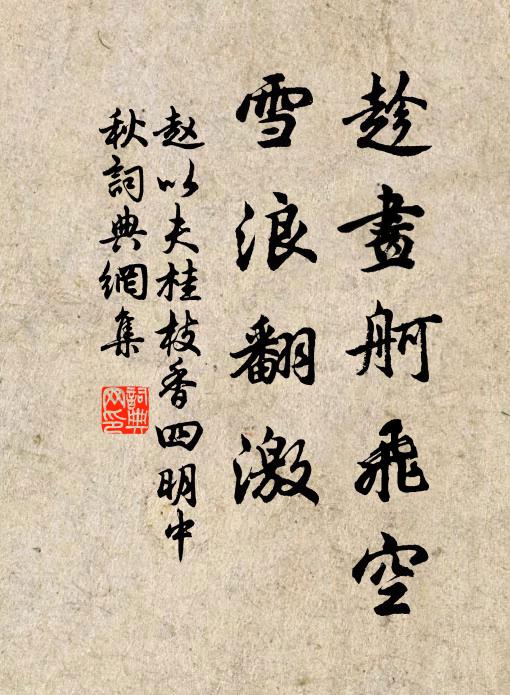 趁畫舸飛空
雪浪翻激
赵以夫桂枝香四明中
秋詞典網集
詞典
网印